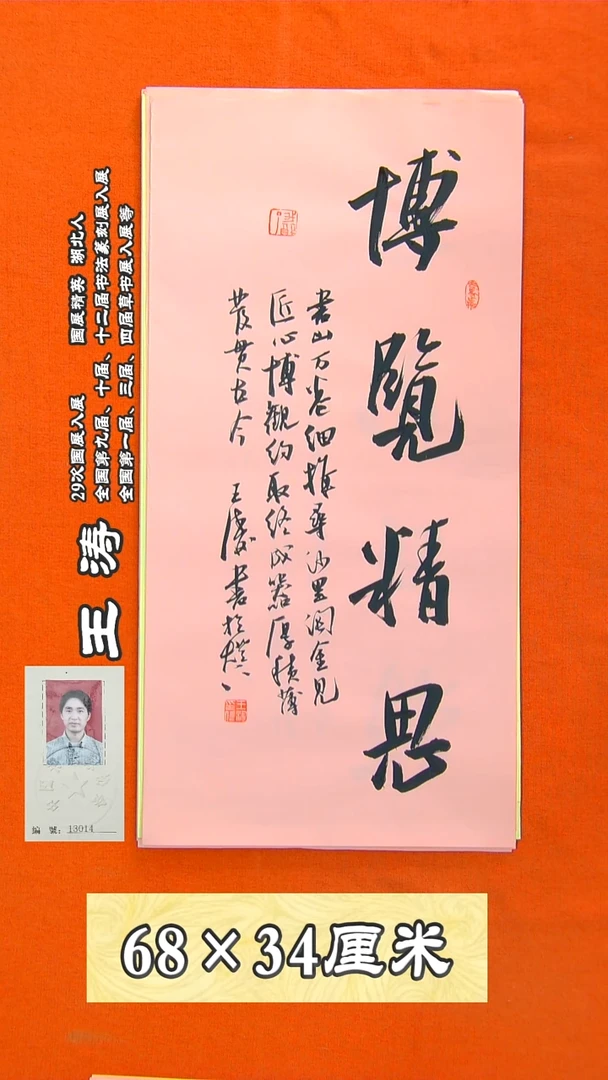 博覽精思
書山万卷细推尋沙里淘金見
匠心博觀约取终成器厚積薄
發贯古今 王涛書於
王涛
29次国展入展 国展精英 湖北人
全国第九届、十届、十二届书法篆刻展入展
全国第一届、三届、四届草书展入展等
编 號: 13014
68×34厘米